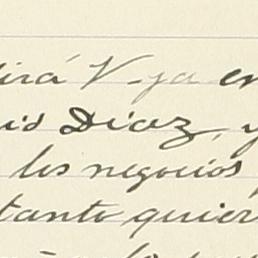 irá V- ya en
uis Diaz, y
los negocios
tanto quier